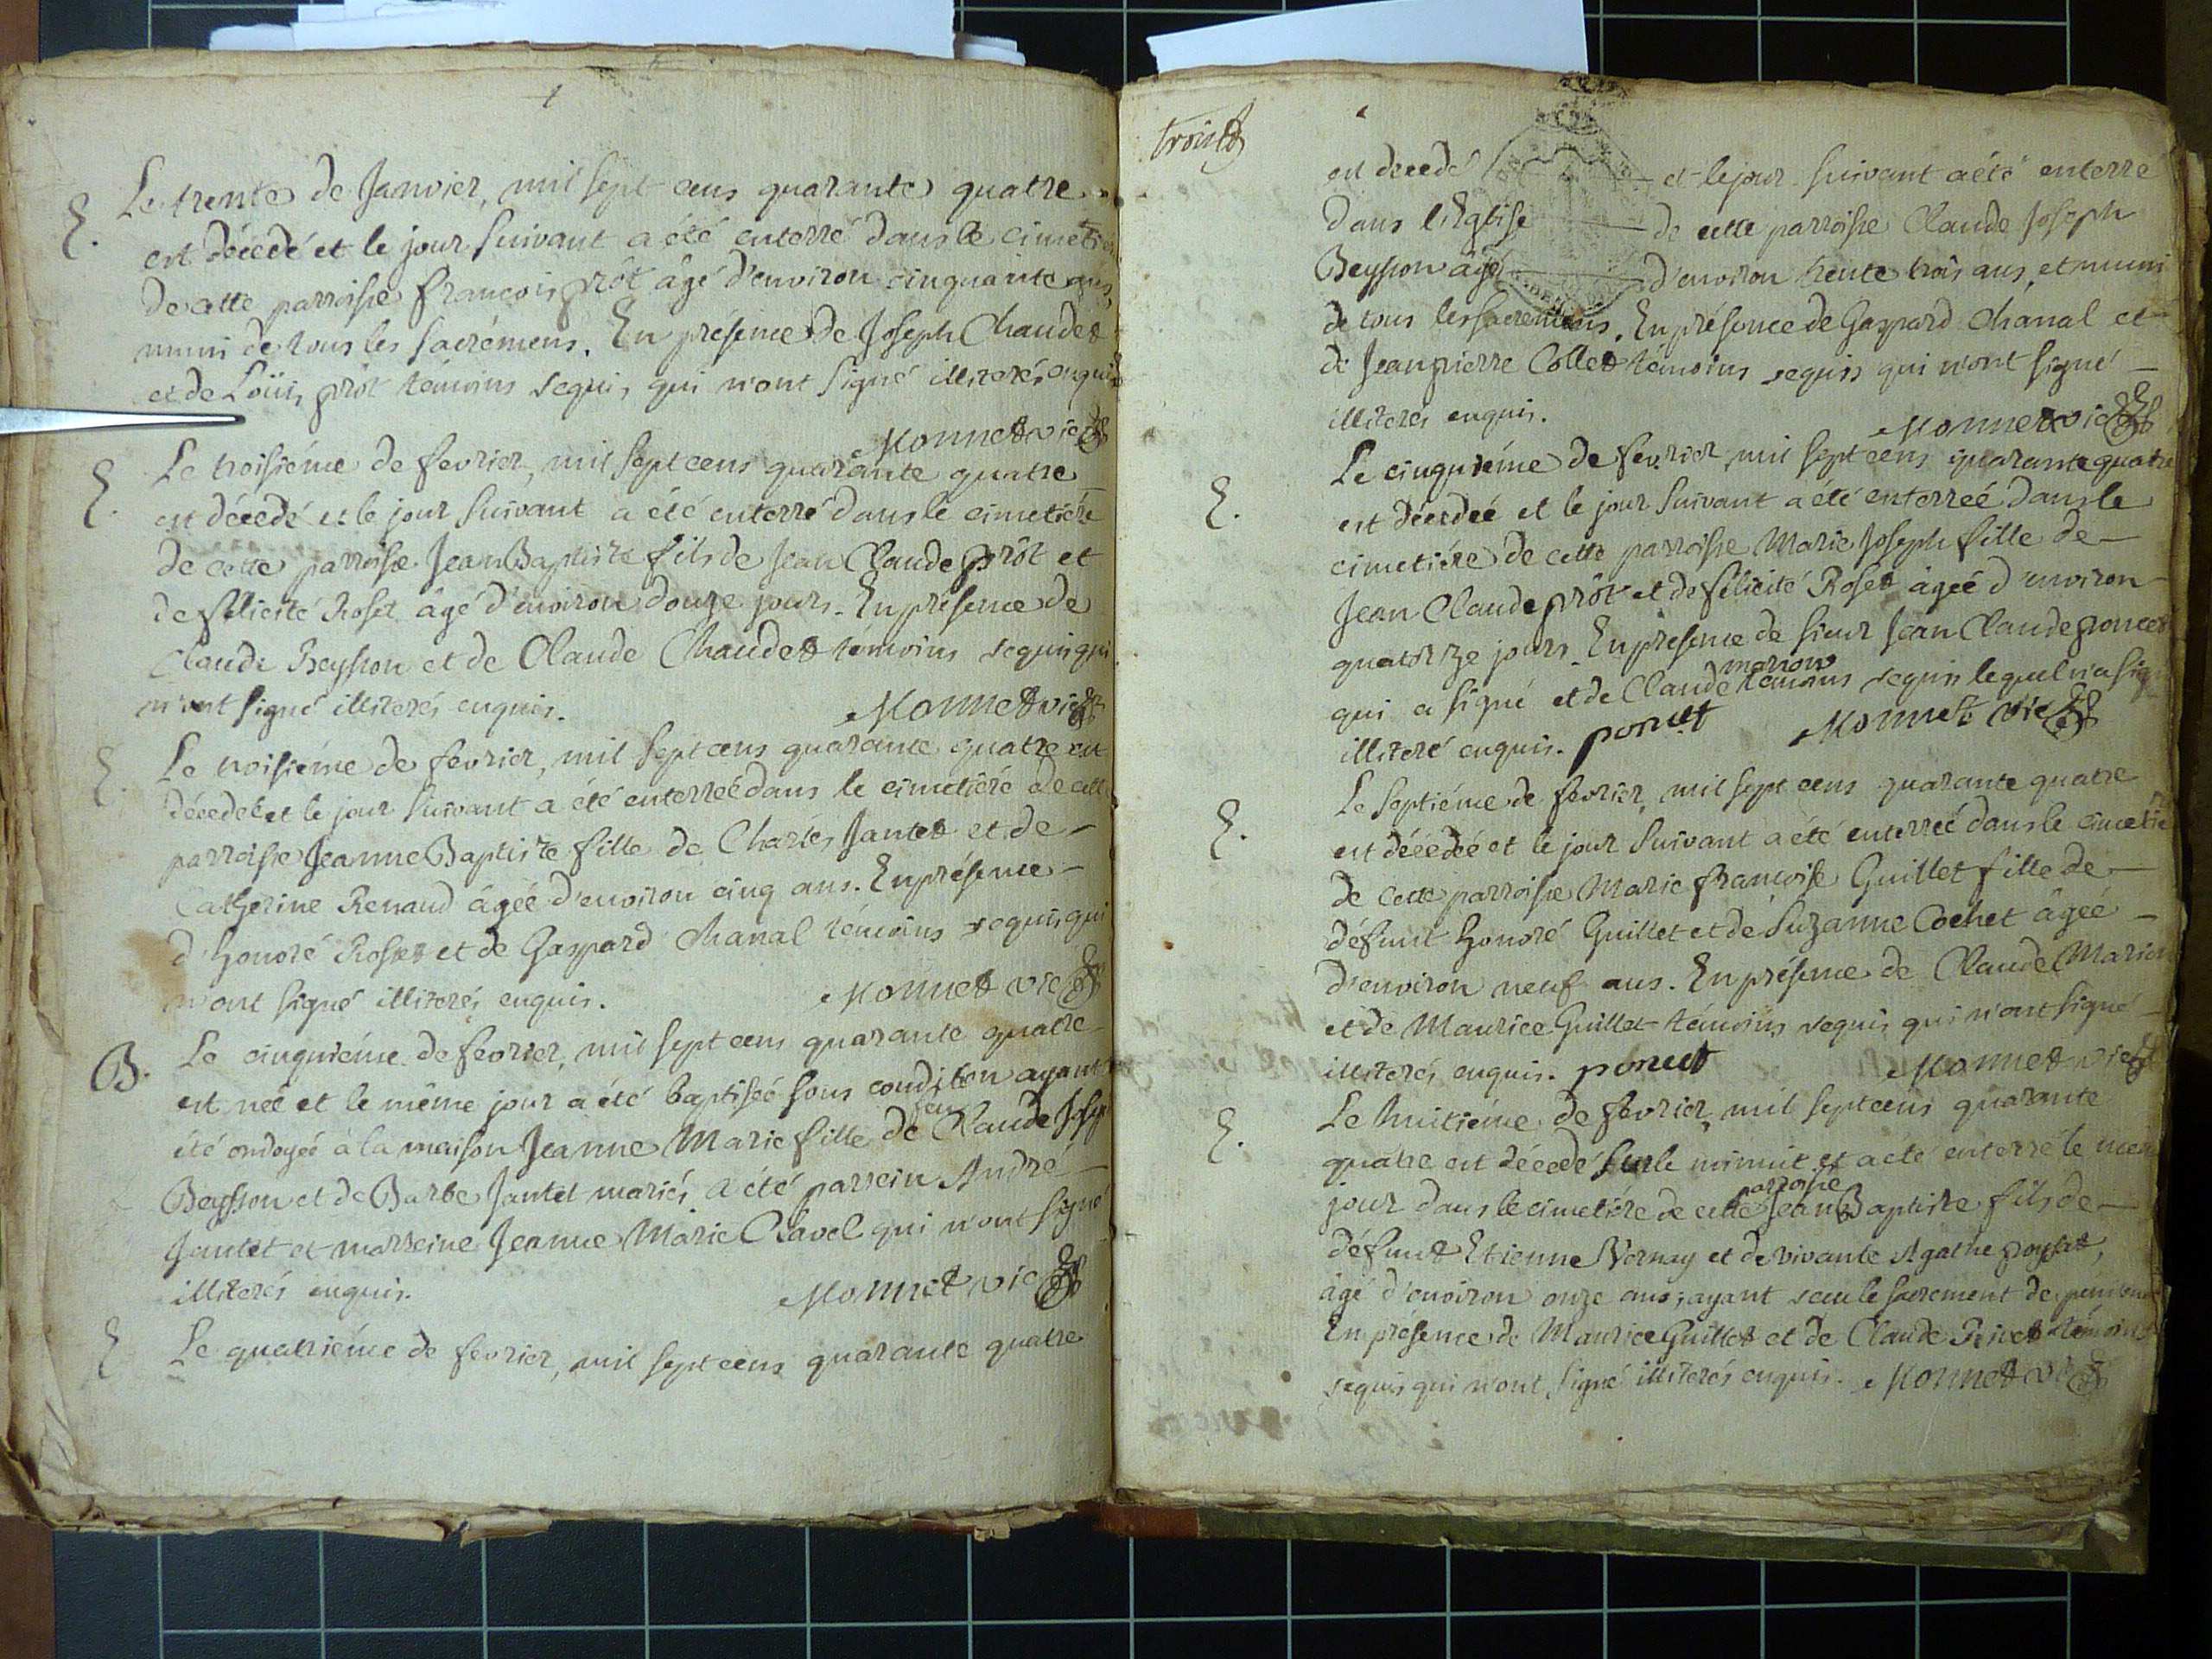 E. Le trente de Janvier, mil sept cens quarante quatre
est décedé et le jour suivant a été enterré dans le cimetie
de cette parroisse françois prôt âgé d'environ cinquante ans,
muni de tous les sacrémens. En présence de Joseph Chaudet
et de Loüis prôt témoins requis, qui n'ont signé illiterés enquis
Monnet vic
E. Le troisiéme de fevrier, mil sept cens quarante quatre
est décedé et le jour suivant a été enterré dans le cimetiére
de cette parroisse Jean Baptiste fils de Jean Claude prôt et
de félicité Roset âgé d'environ douze jours. En présence de
Claude Beysson et de Claude Chaudet témoins requis qui
n'ont signé illiterés enquis.
Monnet vic
E. Le troisiéme de fevrier, mil sept cens quarante quatre est
décedeé et le jour suivant a été enterreé dans le cimetiére de cett
parroisse Jeanne Baptiste fille de Charles Jantet et de
Catherine Renaud âgée d'environ cinq ans. En présence
d'honoré Roset et de Gaspard Chanal témoins requis qui
n'ont signé illiterés enquis.
Monnet vic
B. Le cinquiéme de fevrier, mil sept cens quarante quatre
est neé et le même jour a été baptiseé sous condition ayant
été ondoyeé à la maison Jeanne Marie fille de feu Claude Josep
Beysson et de Barbe Jantet mariés a été parrein André
Jantet et marreine Jeanne Marie Clavel qui n'ont signé
illiterés enquis.
Monnet vic
E Le quatriéme de fevrier, mil sept cens quarante quatre
trois
est decedé et le jour suivant a été enterré
dans l'Eglise de cette parroisse Claude Joseph
Beysson âgé d'environ trente trois ans, et muni
de tous les sacremens. En présence de Gaspard Chanal et
de Jean pierre Collet témoins requis qui n'ont signé
illiterés enquis.
Monnet vic
E. Le cinquiéme de fevrier, mil sept cens quarante quatre
est décedeé et le jour suivant a été enterreé dans le
cimetiére de cette parroisse Marie Joseph fille de
Jean Claude prôt et de félicité Roset âgeé d'environ
quatorze jours. En presence de sieur Jean Claude poncet
qui a signé et de Claude marion témoins requis lequel n'a sign
illiteré enquis. poncet Monnet vic
E. Le septiéme de fevrier, mil sept cens quarante quatre
est décedeé et le jour suivant a été enterreé dans le cimetie
de cette parroisse Marie françoise Guillet fille de
défunt honoré Guillet et de Suzanne Cochet âgeé
d'environ neuf ans. En présence de Claude Marion
et de Maurice Guillet témoins requis qui n'ont signé
illiterés enquis. poncet Monnet vic
E. Le huitiéme de fevrier, mil sept cens quarante
quatre est décedé sur le minuit et a été enterré le mem
jour dans le cimetiére de cette parroisse Jean Baptiste fils de
défunt Etienne Vernay et de vivante Agathe poysat,
âgé d'environ onze ans, ayant receu le sacrement de penitence
En présence de Maurice Guillet et de Claude Rivet témoins
requis qui n'ont signé illiterés enquis. Monnet vic